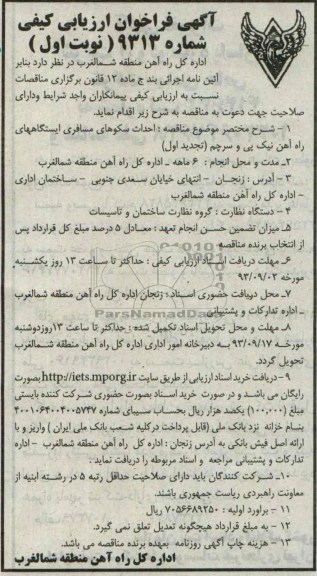 آگهی فراخوان ارزیابی کیفی
شماره ۹۳۱۳ ( نوبت اول )
اداره کل راه آهن منطقه شمالغرب در نظر دارد بنابر
آئین نامه اجرائی بند ج ماده ۱۲ قانون برگزاری مناقصات
نسبت به ارزیابی کیفی پیمانکاران واجد شرایط ودارای
صلاحیت جهت دعوت به مناقصه به شرح زیر اقدام نماید.
۱- شرح مختصر موضوع مناقصه : احداث سکوهای مسافری ایستگاههای
راه آهن نیک پی و سرچم (تجدید اول)
۲ـ مدت و محل انجام : ۶ ماهه ـ اداره کل راه آهن منطقه شمالغرب
۳ - آدرس : زنجان - انتهای خیابان سعدی جنوبی - ساختمان اداری
- اداره کل راه آهن منطقه شمالغرب
۴ - دستگاه نظارت : گروه نظارت ساختمان و تاسیسات
۵ـ میزان تضمین حسن انجام تعهد : معادل ۵ درصد مبلغ کل قرارداد پس
از انتخاب برنده مناقصه
۶ـ مهلت دریافت اسناد ارزیابی کیفی : حداکثر تا ساعت ۱۳ روز یکشنبه
مورخه ۹۳/۰۹/۰۲
۷ـ محل دریافت حضوری اسناد : زنجان اداره کل راه آهن منطقه شمالغرب
ـ اداره تدارکات و پشتیبانی
۸ـ مهلت و محل تحویل اسناد تکمیل شده : حداکثر تا ساعت ۱۳روزدوشنبه
مورخه ۹۳/۰۹/۱۷ به دبیرخانه امور اداری اداره کل راه آهن منطقه شمالغرب
تحویل گردد.
۹ - دریافت خرید اسناد ارزیابی از طریق سایت http://iets.mporg.ir بصورت
رایگان می باشد و در صورت خرید اسناد بصورت حضوری شرکت کننده بایستی
مبلغ (۱۰۰,۰۰۰) یکصد هزار ریال بحساب سیبای شماره ۴۰۰۱۰۶۴۰۰۴۰۰۵۷۴۷
بنام خزانه نزد بانک ملی (قابل پرداخت درکلیه شعب بانک ملی ایران ) واریز و با
ارائه اصل فیش بانکی به آدرس زنجان : اداره کل راه آهن منطقه شمالغرب - اداره
تدارکات و پشتیبانی مراجعه و اسناد مربوطه را دریافت نماید.
۱۰ـ شرکت کنندگان باید دارای صلاحیت حداقل رتبه ۵ در رشته ابنیه از
معاونت راهبردی ریاست جمهوری باشند.
۱۱ - براورد اولیه : ۷۰۵۶۶۸۹۲۵۰ ریال
۱۲ - به مبلغ قرارداد هیچگونه تعدیل تعلق نمی گیرد.
۱۳ - هزینه چاپ آگهی روزنامه بعهده برنده مناقصه می باشد.
اداره کل راه آهن منطقه شمالغرب
ParsNamadData